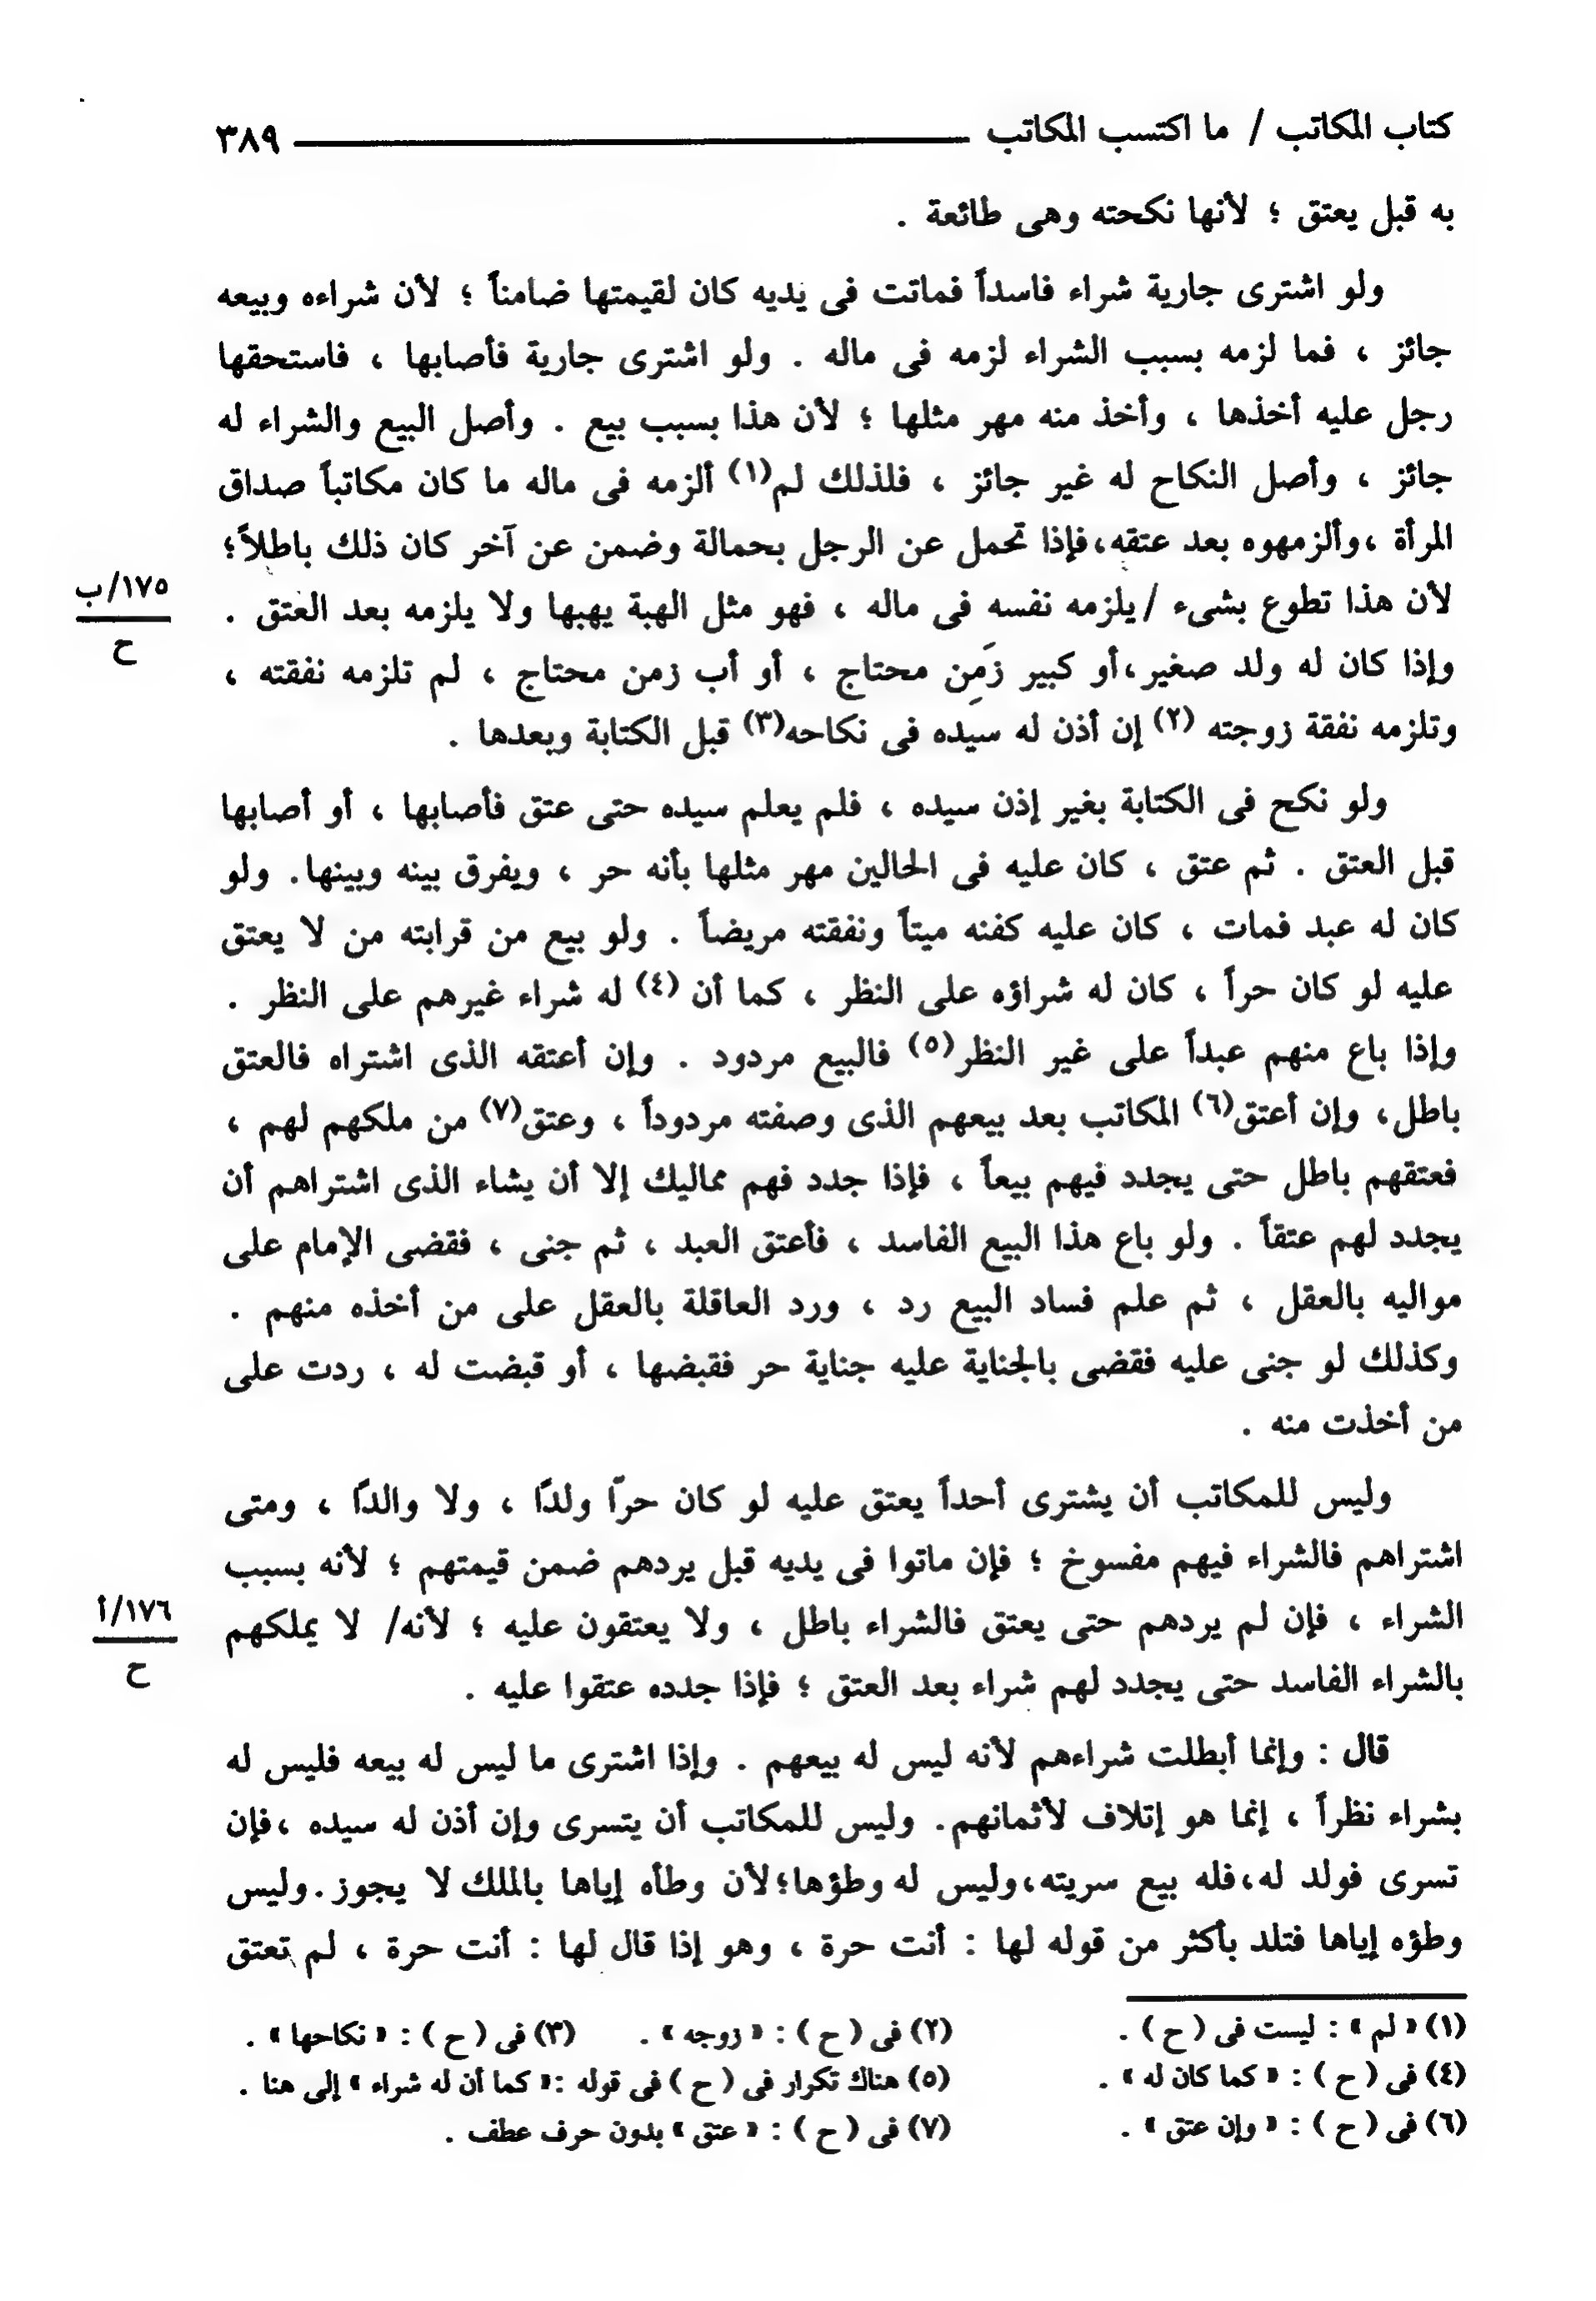 كتاب المكاتب / ما اكتسب المكاتب ٣٨٩
به قبل يعتق ؛ لأنها نكحته وهى طائعة .
ولو اشترى جارية شراء فاسداً فماتت فى يديه كان لقيمتها ضامناً ؛ لأن شراءه وبيعه
جائز ، فما لزمه بسبب الشراء لزمه فى ماله . ولو اشترى جارية فأصابها ، فاستحقها
رجل عليه أخذها ، وأخذ منه مهر مثلها ؛ لأن هذا بسبب بيع . وأصل البيع والشراء له
جائز ، وأصل النكاح له غير جائز ، فلذلك لم(١) ألزمه فى ماله ما كان مكاتباً صداق
المرأة ،وألزمهوه بعد عتقه،فإذا تحمل عن الرجل بحمالة وضمن عن آخر كان ذلك باطلاً؛
١٧٥/ب
ح
لأن هذا تطوع بشىء /يلزمه نفسه فى ماله ، فهو مثل الهبة يهبها ولا يلزمه بعد العتق .
وإذا كان له ولد صغير،أو كبير زَمِن محتاج ، أو أب زمن محتاج ، لم تلزمه نفقته ،
وتلزمه نفقة زوجته (٢) إن أذن له سيده فى نكاحه(٣) قبل الكتابة وبعدها .
ولو نكح فى الكتابة بغير إذن سيده ، فلم يعلم سيده حتى عتق فأصابها ، أو أصابها
قبل العتق . ثم عتق ، كان عليه فى الحالين مهر مثلها بأنه حر ، ويفرق بينه وبينها. ولو
كان له عبد فمات ، كان عليه كفنه ميتاً ونفقته مريضاً . ولو بيع من قرابته من لا يعتق
عليه لو كان حراً ، كان له شراؤه على النظر ، كما أن (٤) له شراء غيرهم على النظر .
وإذا باع منهم عبداً على غير النظر(٥) فالبيع مردود . وإن أعتقه الذى اشتراه فالعتق
باطل، وإن أعتق(٦) المكاتب بعد بيعهم الذى وصفته مردوداً ، وعتق(٧) من ملكهم لهم ،
فعتقهم باطل حتى يجدد فيهم بيعاً ، فإذا جدد فهم مماليك إلا أن يشاء الذى اشتراهم أن
يجدد لهم عتقاً . ولو باع هذا البيع الفاسد ، فأعتق العبد ، ثم جنى ، فقضى الإمام على
مواليه بالعقل ، ثم علم فساد البيع رد ، ورد العاقلة بالعقل على من أخذه منهم .
وكذلك لو جنى عليه فقضى بالجناية عليه جناية حر فقبضها ، أو قبضت له ، ردت على
من أخذت منه .
وليس للمكاتب أن يشترى أحداً يعتق عليه لو كان حرّا ولدًا ، ولا والدًا ، ومتى
اشتراهم فالشراء فيهم مفسوخ ؛ فإن ماتوا فى يديه قبل يردهم ضمن قيمتهم ؛ لأنه بسبب
١٧٦/أ
ح
الشراء ، فإن لم يردهم حتى يعتق فالشراء باطل ، ولا يعتقون عليه ؛ لأنه/ لا يملكهم
بالشراء الفاسد حتى يجدد لهم شراء بعد العتق ؛ فإذا جدده عتقوا عليه .
قال : وإنما أبطلت شراءهم لأنه ليس له بيعهم . وإذا اشترى ما ليس له بيعه فليس له
بشراء نظراً ، إنما هو إتلاف لأثمانهم. وليس للمكاتب أن يتسرى وإن أذن له سيده ،فإن
تسرى فولد له،فله بيع سريته،وليس له وطؤها؛لأن وطأه إياها بالملك لا يجوز.وليس
وطؤه إياها فتلد بأكثر من قوله لها : أنت حرة ، وهو إذا قال لها : أنت حرة ، لم تعتق
(١) « لم » : ليست فى ( ح ) . (٢) فى ( ح ) : « زوجه » . (٣) فى ( ح ) : « نكاحها » .
(٤) فى ( ح ) : « كما كان له » . (٥) هناك تكرار فى ( ح ) فى قوله :« كما أن له شراء » إلى هنا .
(٦) فى ( ح ) : « وإن عتق » . (٧) فى ( ح ) : « عتق » بدون حرف عطف .